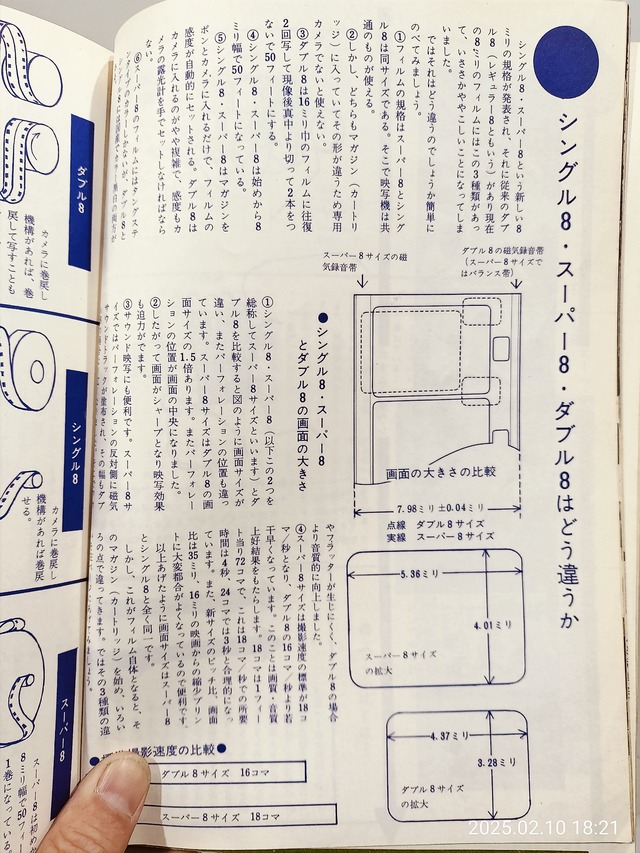 シングル8・スーパー8・ダブル8はどう違うか
シングル8・スーパー8という新しい8
ミリの規格が発表され、それに従来のダブ
ル8(レギュラー8ともいう)があり現在
の8ミリのフィルムにはこの3種類があっ
て、いささかややこしいことになってしま
いました。
ではそれはどう違うのでしょうか簡単に
のべてみましょう。
①フィルムの規格はスーパー8とシング
ル8は同サイズである。そこで映写機は共
通のものが使える。
②しかし、どちらもマガジン(カートリ
ッジ)に入っていてその形が違うため専用
カメラでないと使えない。
③ダブル8は16ミリ巾のフィルムに往復
2回写して現像後真中より切って2本をつ
ないで50フィートにする。
④シングル8・スーパー8は始めから8
ミリ幅で50フィートになっている。
⑤シングル8・スーパー8はマガジンを
ポンとカメラに入れるだけで、フィルムの
感度が自動的にセットされる。ダブル8は
カメラに入れるのがやや複雑で、感度もカ
メラの露光計を手でセットしなければなら
ない。
⑥スーパー8のフィルムにはタングステ
スーパー8サイズの磁
気録音帯
ダブル8の磁気録音帯
(スーパー8サイズで
はバランス帯)
画面の大きさの比較
7.98ミリ±0.04ミリ
点線 ダブル8サイズ
実線 スーパー8サイズ
●シングル8・スーパー8
とダブル8の画面の大きさ
①シングル8・スーパー8(以下この2つを
総称してスーパー8サイズといいます)とダ
ブル8を比較すると図のように画面サイズが
違い、またパーフォレーションの位置も違っ
ています。スーパー8サイズはダブル8の画
面サイズの1.5倍あります。またパーフォレー
ションの位置が画面の中央になりました。
②したがって画面がシャープとなり映写効果
も迫力がでます。
③サウンド映写にも便利です。スーパー8サ
イズではパーフォレーションの反対側に磁気
サウンドトラックが塗布され、その幅もダブ
やフラッターが生じにくく、ダブル8の場合
より音質的に向上しました。
④スーパー8サイズは撮影速度の標準が18コ
マ/秒となり、ダブル8の16コマ/秒より若
干早くなっています。このことは画質・音質
上好結果をもたらします。18コマは1フィー
ト当り72コマで、これは18コマ/秒での所要
時間は4秒、24コマでは3秒と合理的になっ
ています。また、新サイズのピッチ比、画面
比は35ミリ、16ミリの映画からの縮少プリン
トに大変都合がよくなっているので便利です。
以上あげたように画面サイズはスーパー8
とシングル8と全く同一です。
しかし、これがフィルム自体となると、そ
のマガジン(カートリッジ)を始め、いろい
ろの点で違ってきます。ではその3種類の違
5.36ミリ
4.01ミリ
スーパー8サイズ
の拡大
4.37ミリ
3.28ミリ
ダブル8サイズ
の拡大
撮影速度の比較●
ダブル8サイズ 16コマ
スーパー8サイズ 18コマ
ダブル8
カメラに巻戻し
機構があれば、巻
戻して写すことも
シングル8
カメラに巻戻し
機構があれば巻戻
せる。
スーパー8
スーパー8は初めか
8ミリ幅で50フィー
1巻になっている。
2025.02.10 18:21